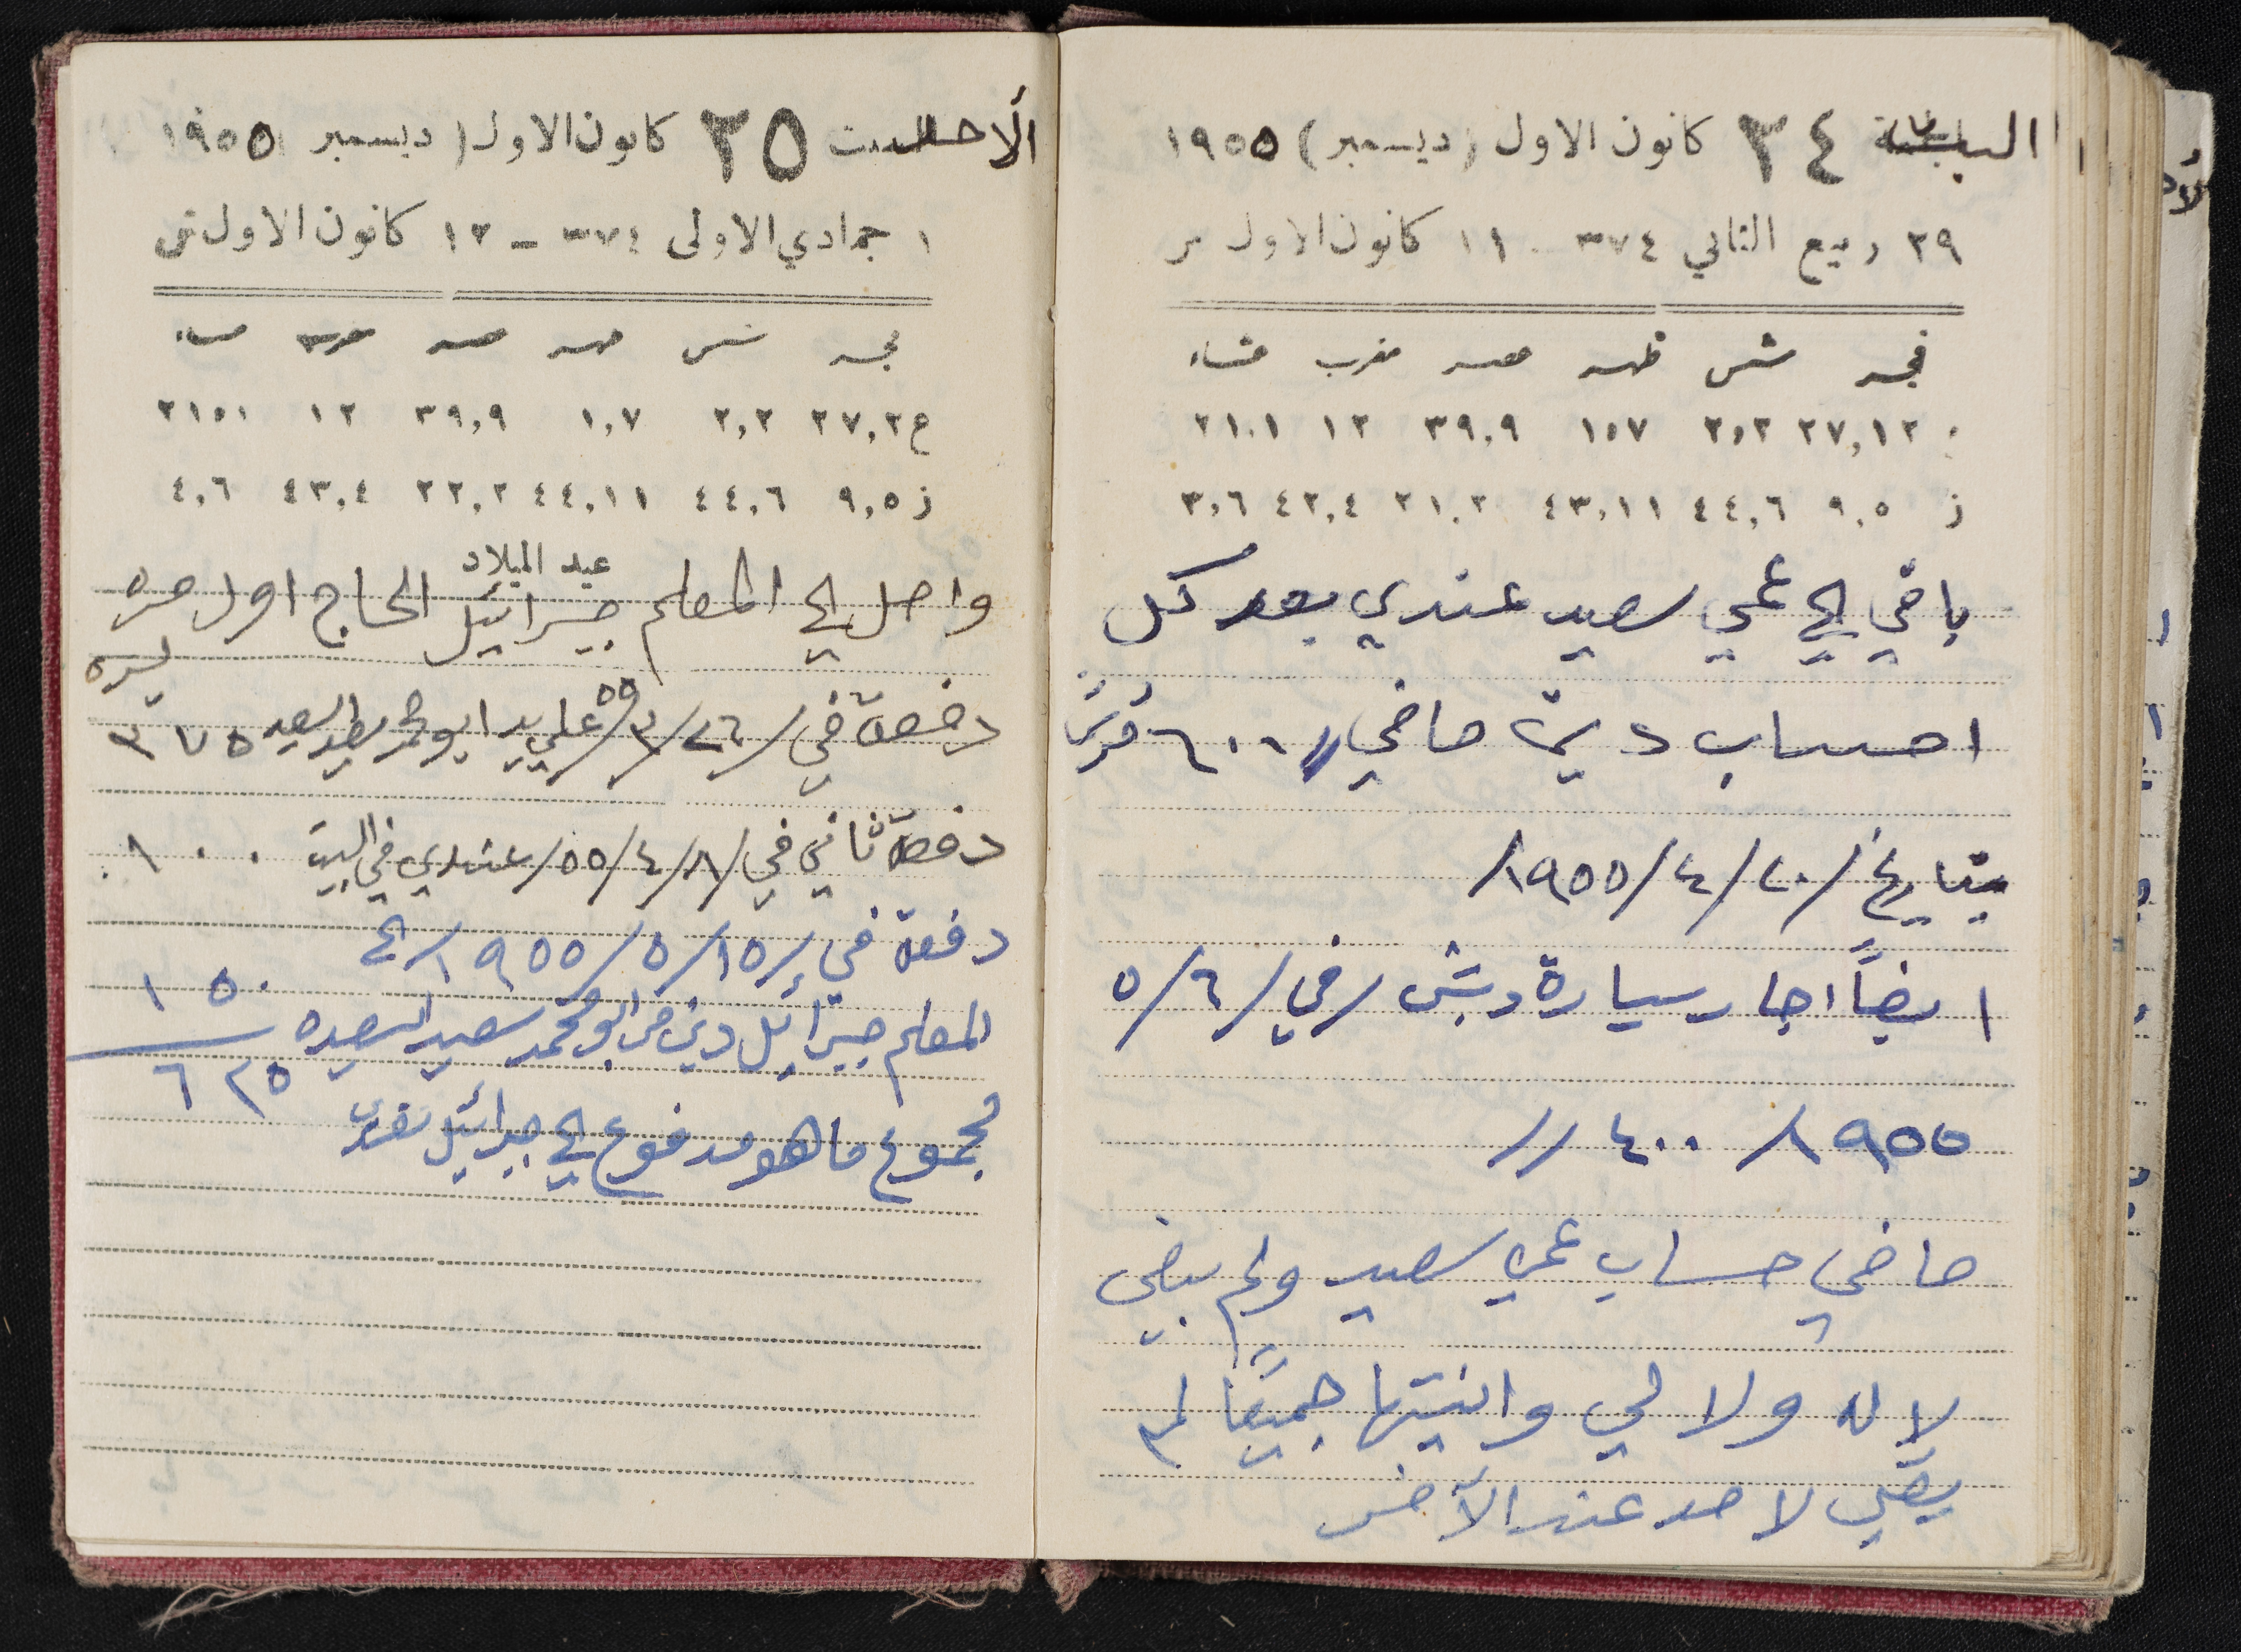 السبت ٢٤ كانون الاول (ديسمبر) ١٩٥٥
٢٩ ربيع الثاني ٣٧٤ ١١ كانون الاول
فجر شمس ظهر عصر مغرب عشاء
٢٧,١٢ ٢,٢ ١,٧ ٣٩,٩ ١٢ ٢١,١
ز ٩,٥ ٤٤,٦ ٤٣,١١ ٢١,٢ ٤٢,٤ ٣,٦
باقي الي عمي سعيد عندي بعد كل
احساب دين صافي // ٦٠٠
بتاريخ /٢٠/٤/١٩٥٥/
ايضاً اجار سيارة دبش /في/٥/٦
١٩٥٥/ ٤٠٠ //
صافي حساب عمي سعيد ولم يبقى
لا له ولا لي وانيتها جميعاً لم
يبقى لاحد عند الآخر
الأحد ٢٥ كانون الاول (ديسمبر ١٩٥٥
١ جمادي الاولى ٣٧٤ - ١٢ كانون الاول ش
فجر شمس ظهر عصر مغرب عشاء
ع ٢٧,٢ ٢,٢ ١,٧ ٣٩,٩ ١٢ ٢١,١
ز ٩,٥ ٤٤,٦ ٤٤,١١ ٢٢,٢ ٤٣,٤ ٤,٦
عيد الميلاد
واصل الي المعلم جبرائيل الحاج اول مره
ليره
دفعة في /٢٦/٣/٥٥ علي يد ابو محمد السعيد ٣٧٥
دفعة ثاني في /٨/٤/٥٥/ عندي في البيت ١٠٠
دفعة في /١٥/٥/١٩٥٥/ الي
المعلم جبرائيل دين من ابو محمد سعيد السعيد ١٥٠
٦٢٥
مجموع ما هو مدفوع الي جبرائيل نقدي